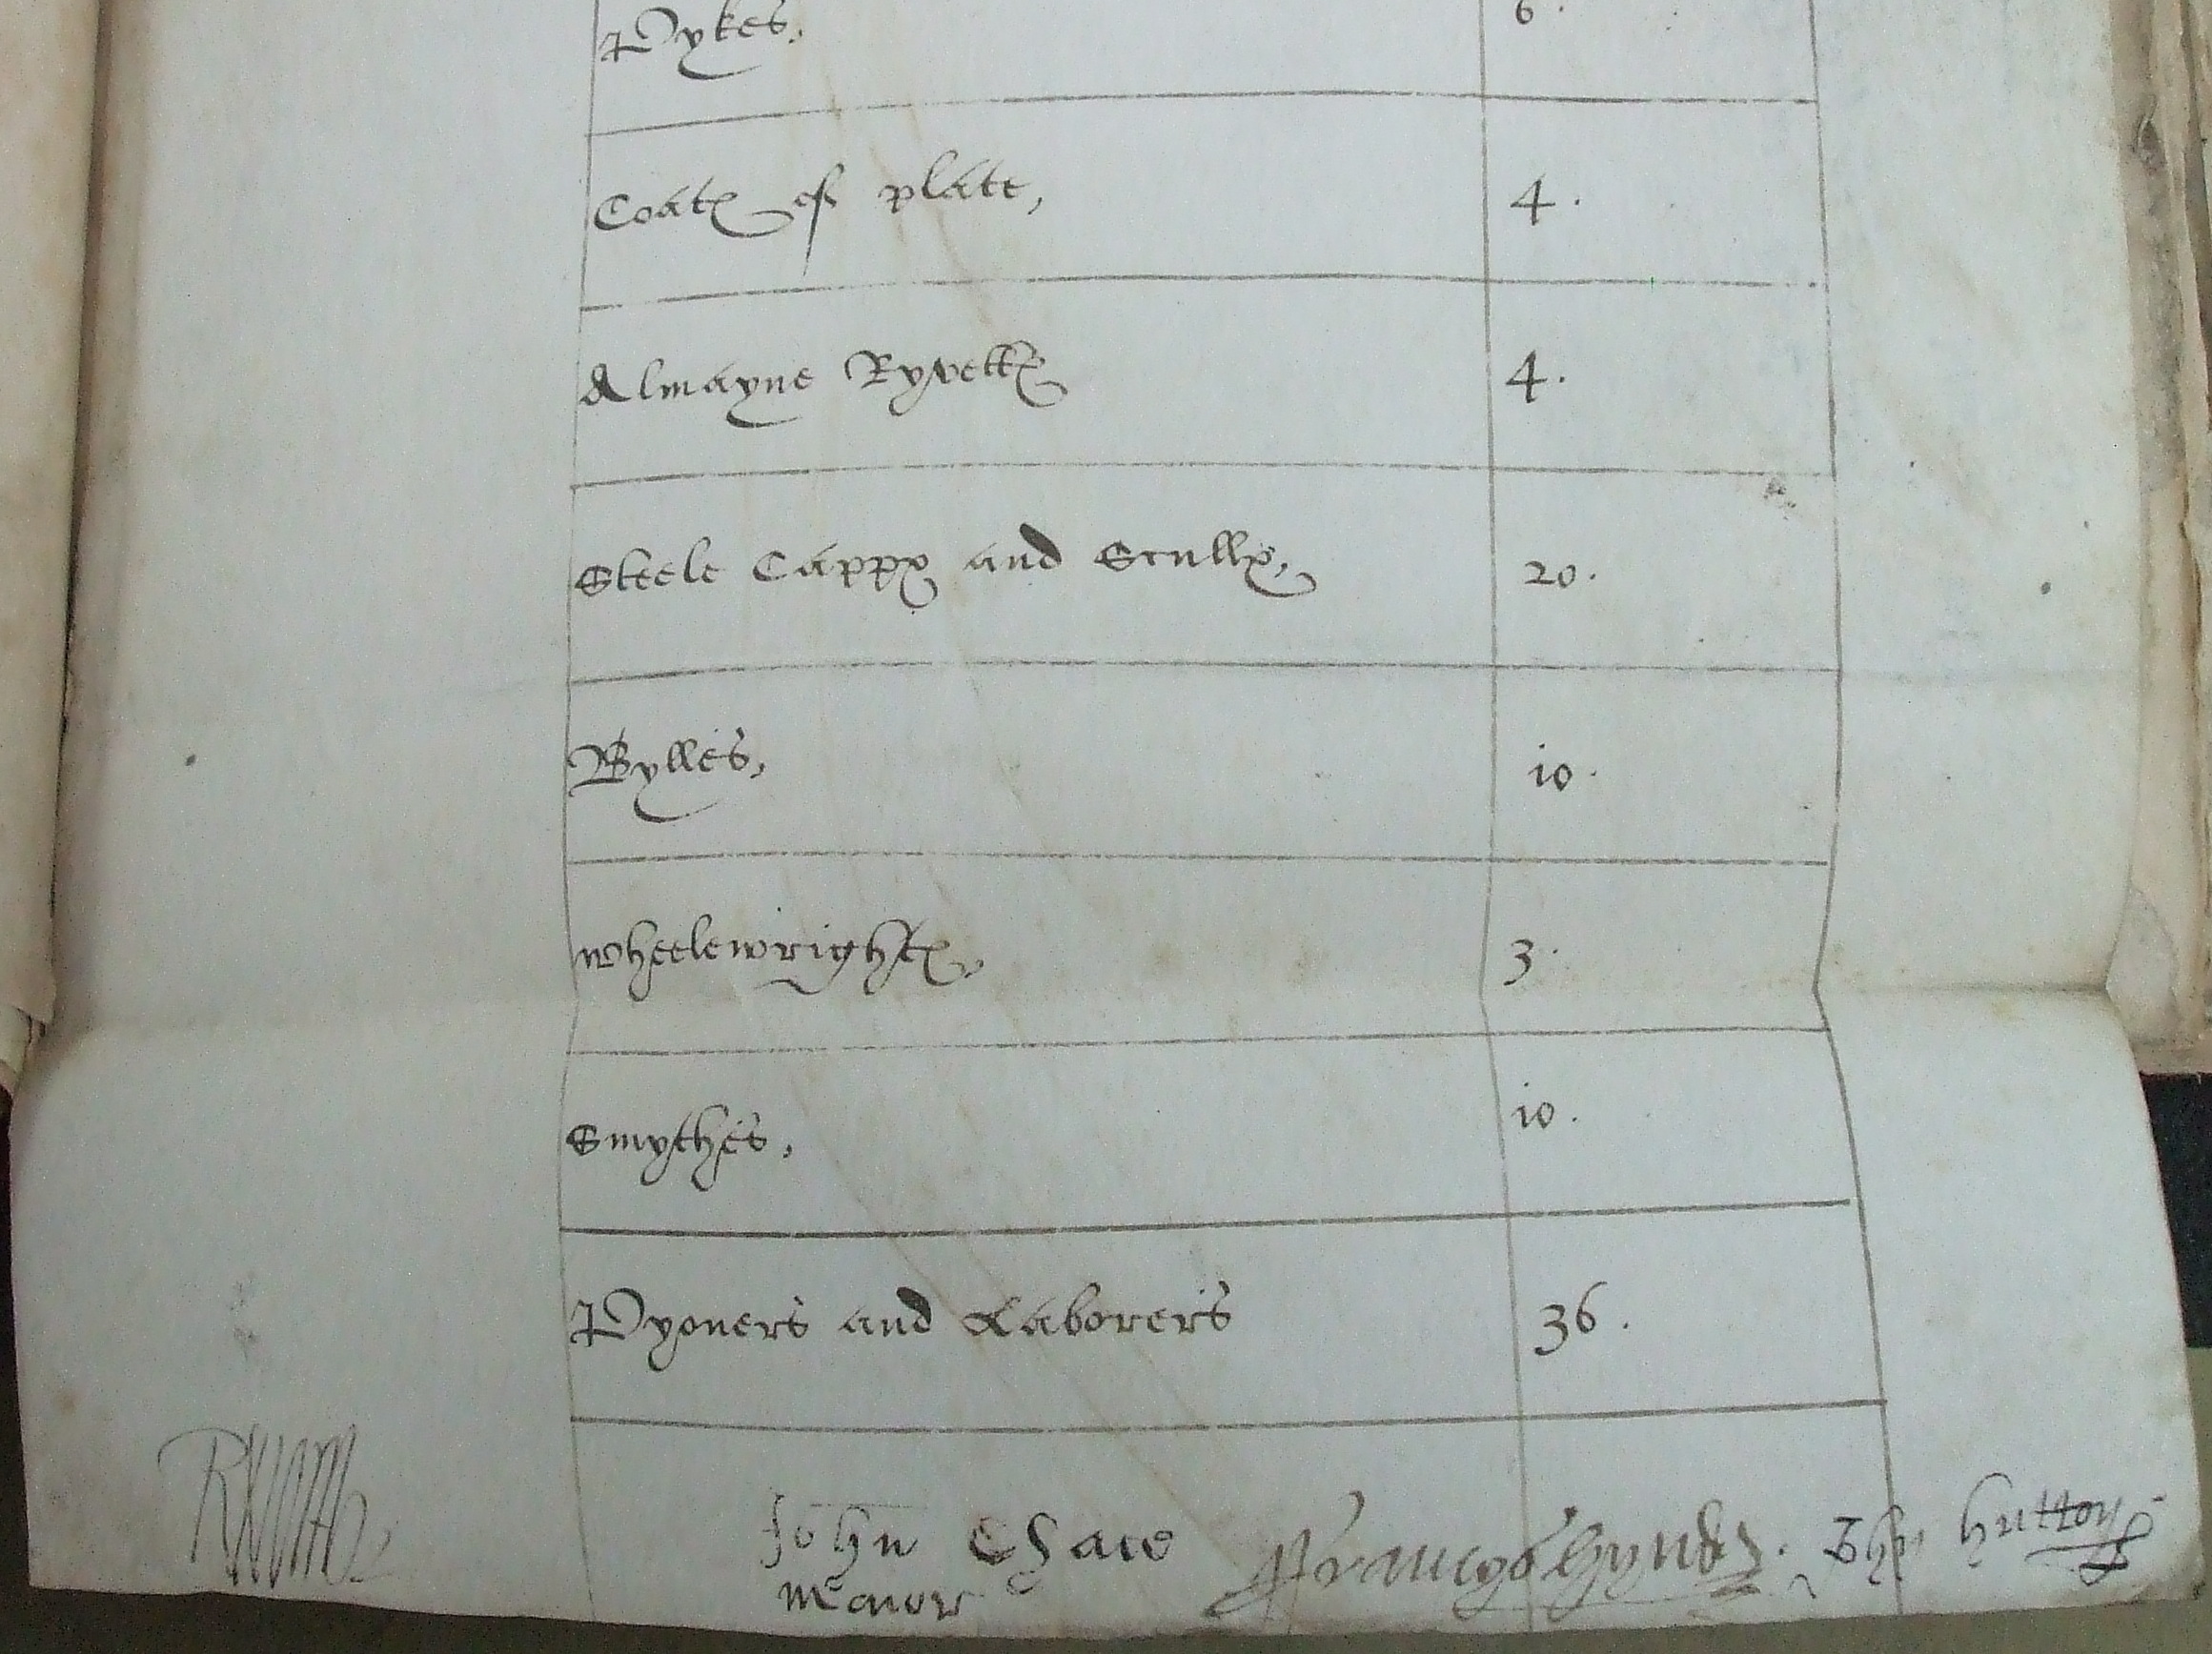 Pykes, 6.
Coates of plate, 4.
Almayne Ryvettes 4.
Steele Cappes and Sculles, 20.
Bylles, 10.
wheelewrightes, 3.
Smythes, 10.
Pyoners and Laborers 36.
John Chace Francys hynde. Jhn hutton
meaior